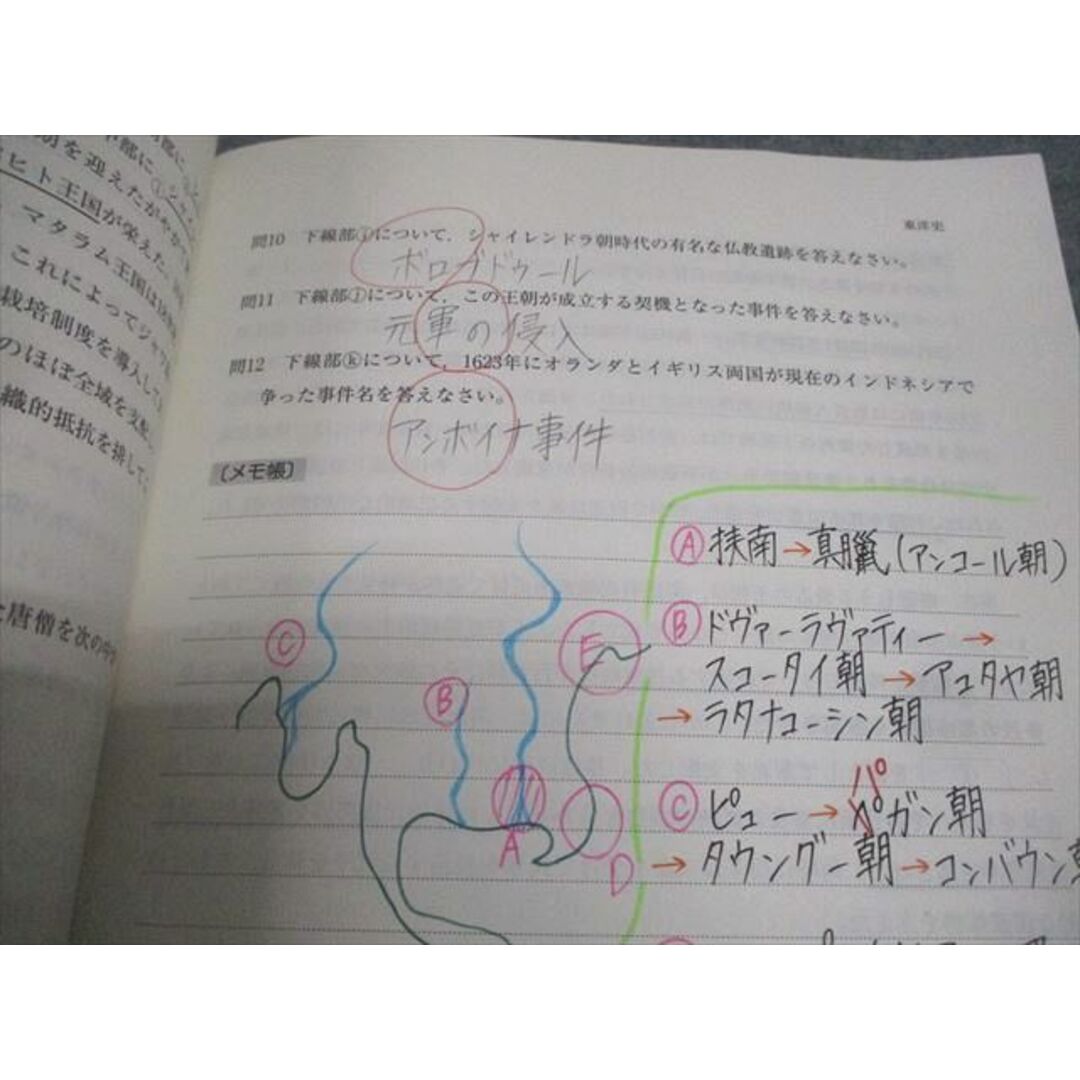 期を迎えたがやがて
ヒト王国が栄えた。
マタラム王国は
これによってジャワ
栽培制度を導入して
のほぼ全域を支配
織的抵抗を排して
唐僧を次の中
東洋史
問10 下線部ⓘについて，シャイレンドラ朝時代の有名な仏教遺跡を答えなさい。
ボロブドゥール
問11 下線部ⓙについて，この王朝が成立する契機となった事件を答えなさい。
元軍の侵入
問12 下線部ⓚについて，1623年にオランダとイギリス両国が現在のインドネシアで
争った事件名を答えなさい。
アンボイナ事件
〔メモ帳〕
Ⓐ 扶南→真臘(アンコール朝)
Ⓑ ドヴァーラヴァティー→
スコータイ朝→アユタヤ朝
→ラタナコーシン朝
Ⓒ ピュー→パガン朝
→タウングー朝→コンバウン
Ⓒ
Ⓑ
E
A
D